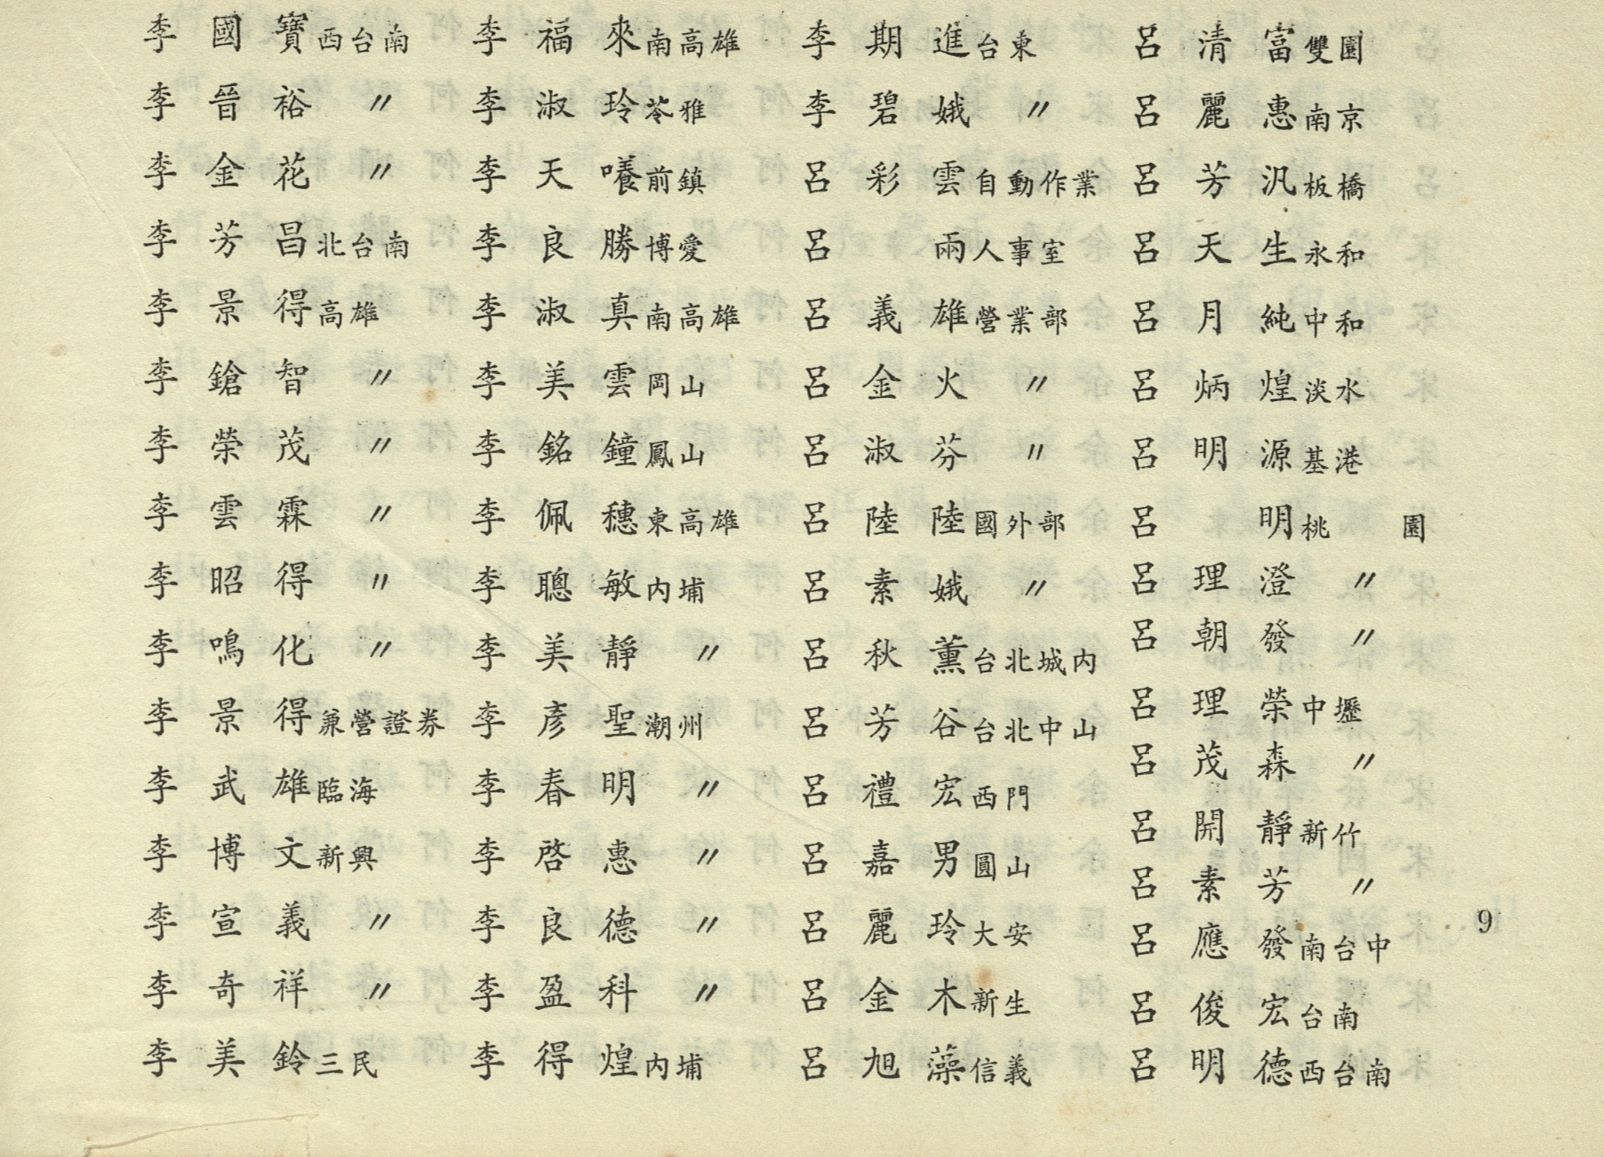 李國寶西台南
李晉裕〃
李金花〃
李芳昌北台南
李景得高雄
李鎗智〃
李榮茂〃
李雲霖〃
李昭得〃
李鳴化〃
李景得兼營證券
李武雄臨海
李博文新興
李宣義〃
李奇祥〃
李美鈴三民
李福來南高雄
李淑玲苓雅
李天㗝前鎮
李良勝博愛
李淑真南高雄
李美雲岡山
李銘鐘鳳山
李佩穗東高雄
李聰敏內埔
李美靜〃
李彥聖潮州
李春明〃
李啓惠〃
李良德〃
李盈科〃
李得煌內埔
李期進台東
李碧娥〃
呂彩雲自動作業
呂　兩人事室
呂義雄營業部
呂金火〃
呂淑芬〃
呂陸陸國外部
呂素娥〃
呂秋薰台北城內
呂芳谷台北中山
呂禮宏西門
呂嘉男圓山
呂麗玲大安
呂金木新生
呂旭藻信義
呂清富雙園
呂麗惠南京
呂芳汎板橋
呂天生永和
呂月純中和
呂炳煌淡水
呂明源基港
呂　明桃園
呂理澄〃
呂朝發〃
呂理榮中壢
呂茂森〃
呂開靜新竹
呂素芳〃
呂應發南台中
呂俊宏台南
呂明德西台南
9